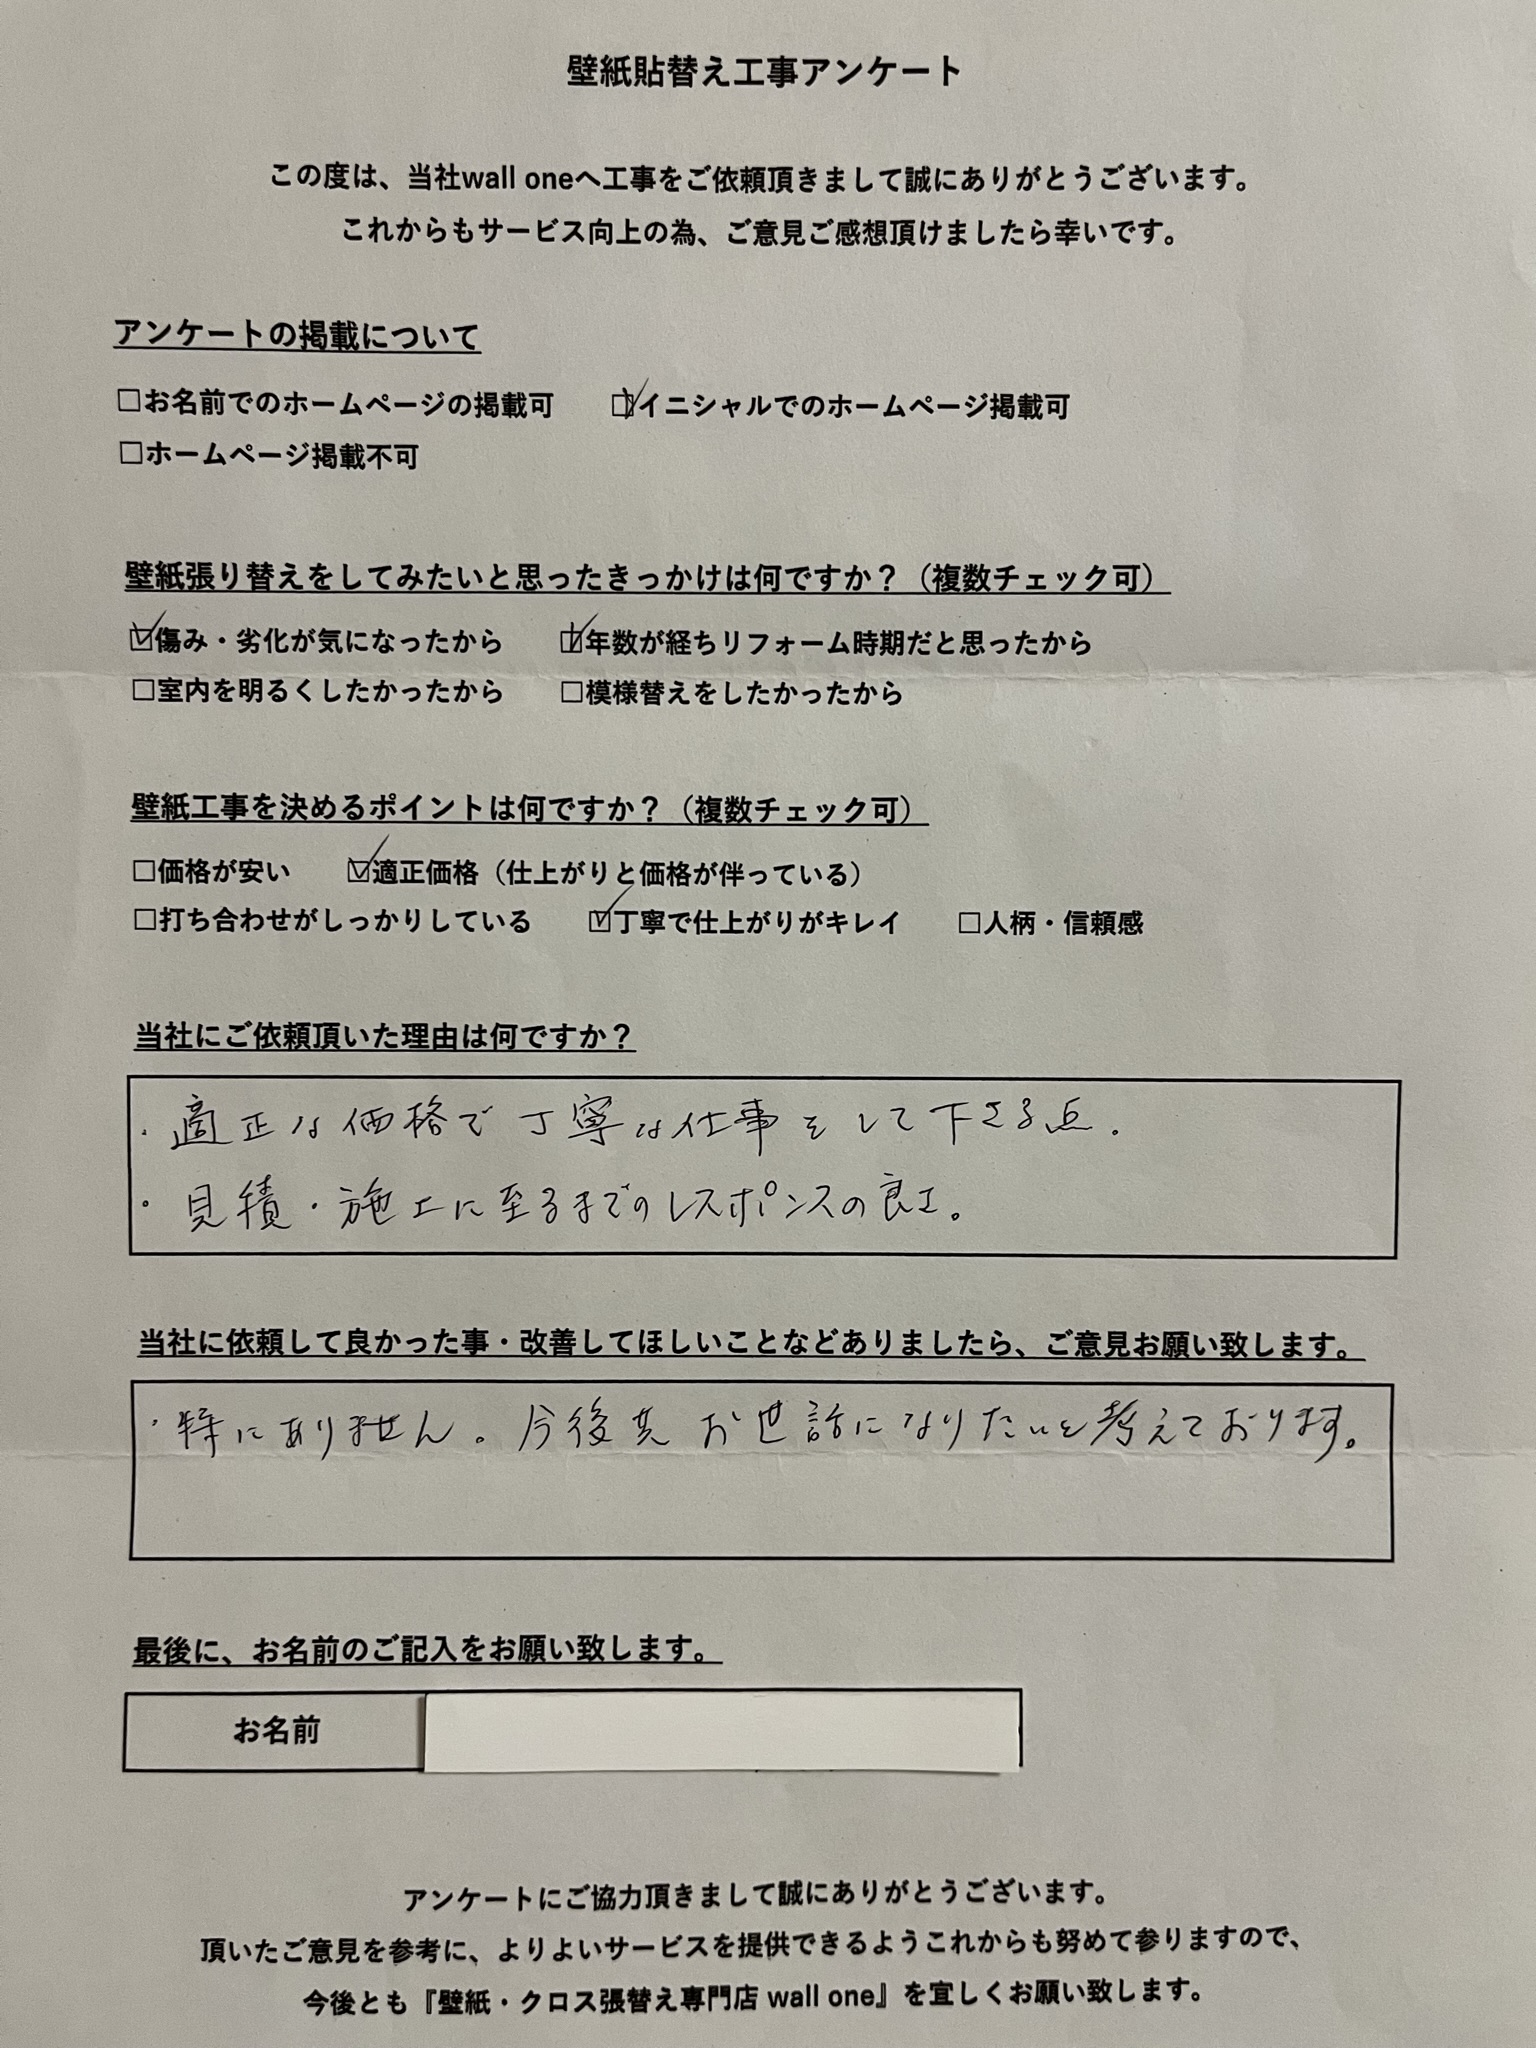 壁紙貼替え工事アンケート
この度は、当社wall oneへ工事をご依頼頂きまして誠にありがとうございます。
これからもサービス向上の為、ご意見ご感想頂けましたら幸いです。
アンケートの掲載について
□お名前でのホームページの掲載可 ☑イニシャルでのホームページ掲載可
□ホームページ掲載不可
壁紙張り替えをしてみたいと思ったきっかけは何ですか？（複数チェック可）
☑傷み・劣化が気になったから ☑年数が経ちリフォーム時期だと思ったから
□室内を明るくしたかったから □模様替えをしたかったから
壁紙工事を決めるポイントは何ですか？（複数チェック可）
□価格が安い ☑適正価格（仕上がりと価格が伴っている）
□打ち合わせがしっかりしている ☑丁寧で仕上がりがキレイ □人柄・信頼感
当社にご依頼頂いた理由は何ですか？
・適正な価格で丁寧な仕事をして下さる点.
・見積・施工に至るまでのレスポンスの良さ。
当社に依頼して良かった事・改善してほしいことなどありましたら、ご意見お願い致します。
・特にありません。今後共お世話になりたいと考えております。
最後に、お名前のご記入をお願い致します。
お名前
アンケートにご協力頂きまして誠にありがとうございます。
頂いたご意見を参考に、よりよいサービスを提供できるようこれからも努めて参りますので、
今後とも『壁紙・クロス張替え専門店 wall one』を宜しくお願い致します。